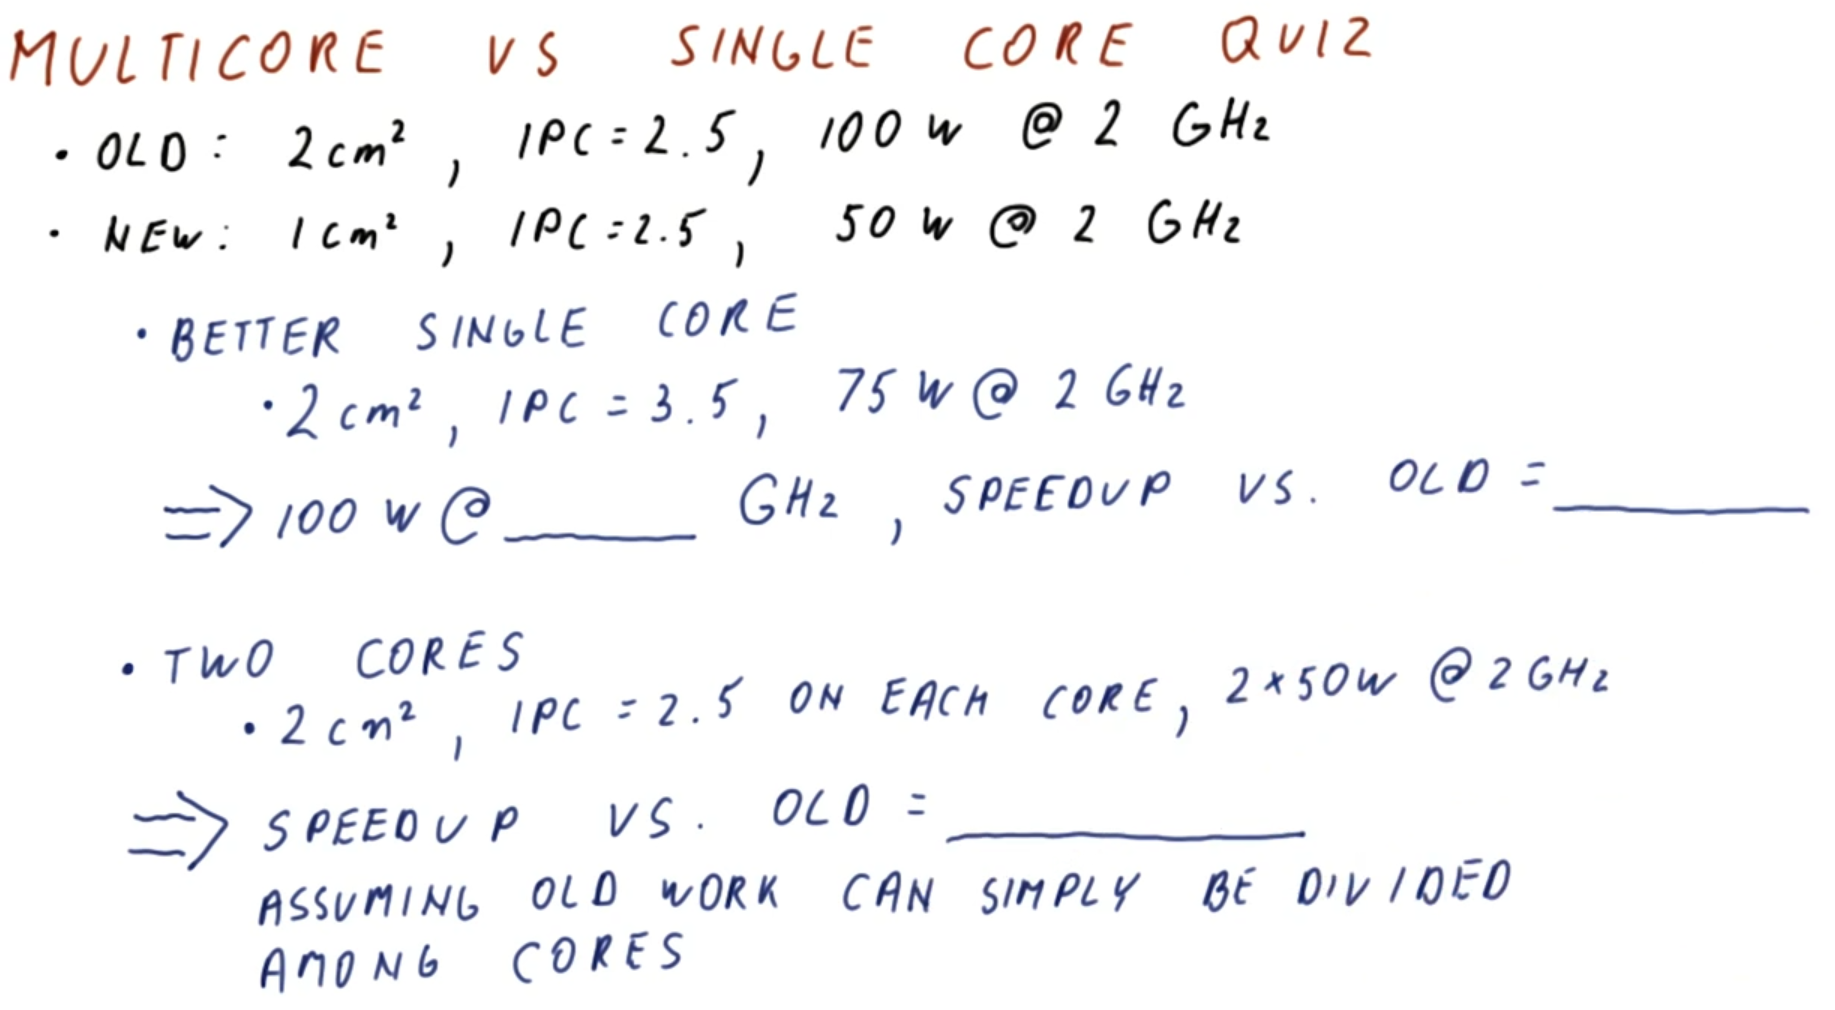 MULTICORE VS SINGLE CORE QUIZ
• OLD: 2cm², IPC=2.5, 100 W @ 2 GHz
• NEW: 1cm², IPC=2.5, 50 W @ 2 GHz
• BETTER SINGLE CORE
• 2cm², IPC = 3.5, 75 W @ 2 GHz
⇒ 100 W @ ______ GHz, SPEEDUP VS. OLD = ______
• TWO CORES
• 2cm², IPC = 2.5 ON EACH CORE, 2×50W @ 2GHz
⇒ SPEEDUP VS. OLD = ______
ASSUMING OLD WORK CAN SIMPLY BE DIVIDED
AMONG CORES